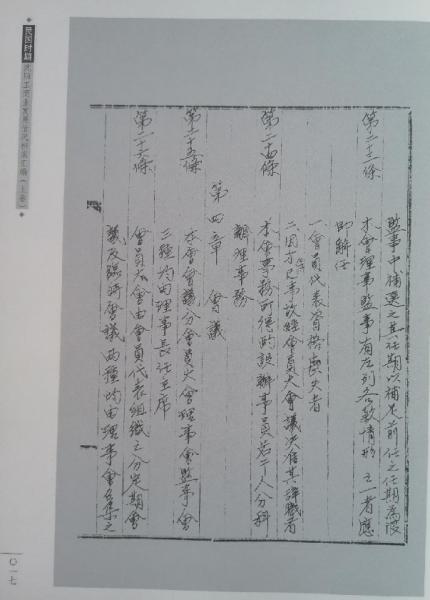 監事中補選之其任期以補足前任之任期為限
第二十三條 本會理事監事有左列各款情形之一者應
即解任
一會員代表資格喪失者
二因不得已事故經會員大會議決准其辭職者
第二十四條 本會事務所得酌設辦事員若干人分科
辦理事務
第四章 會議
第二十五條 本會會議分會員大會理事會監事會
三種均由理事長任主席
第二十六條 會員大會由會員代表組織之分定期會
議及臨時會議兩種均由理事會召集之
民国时期 工商业发展 档案汇编（上卷）
〇一七